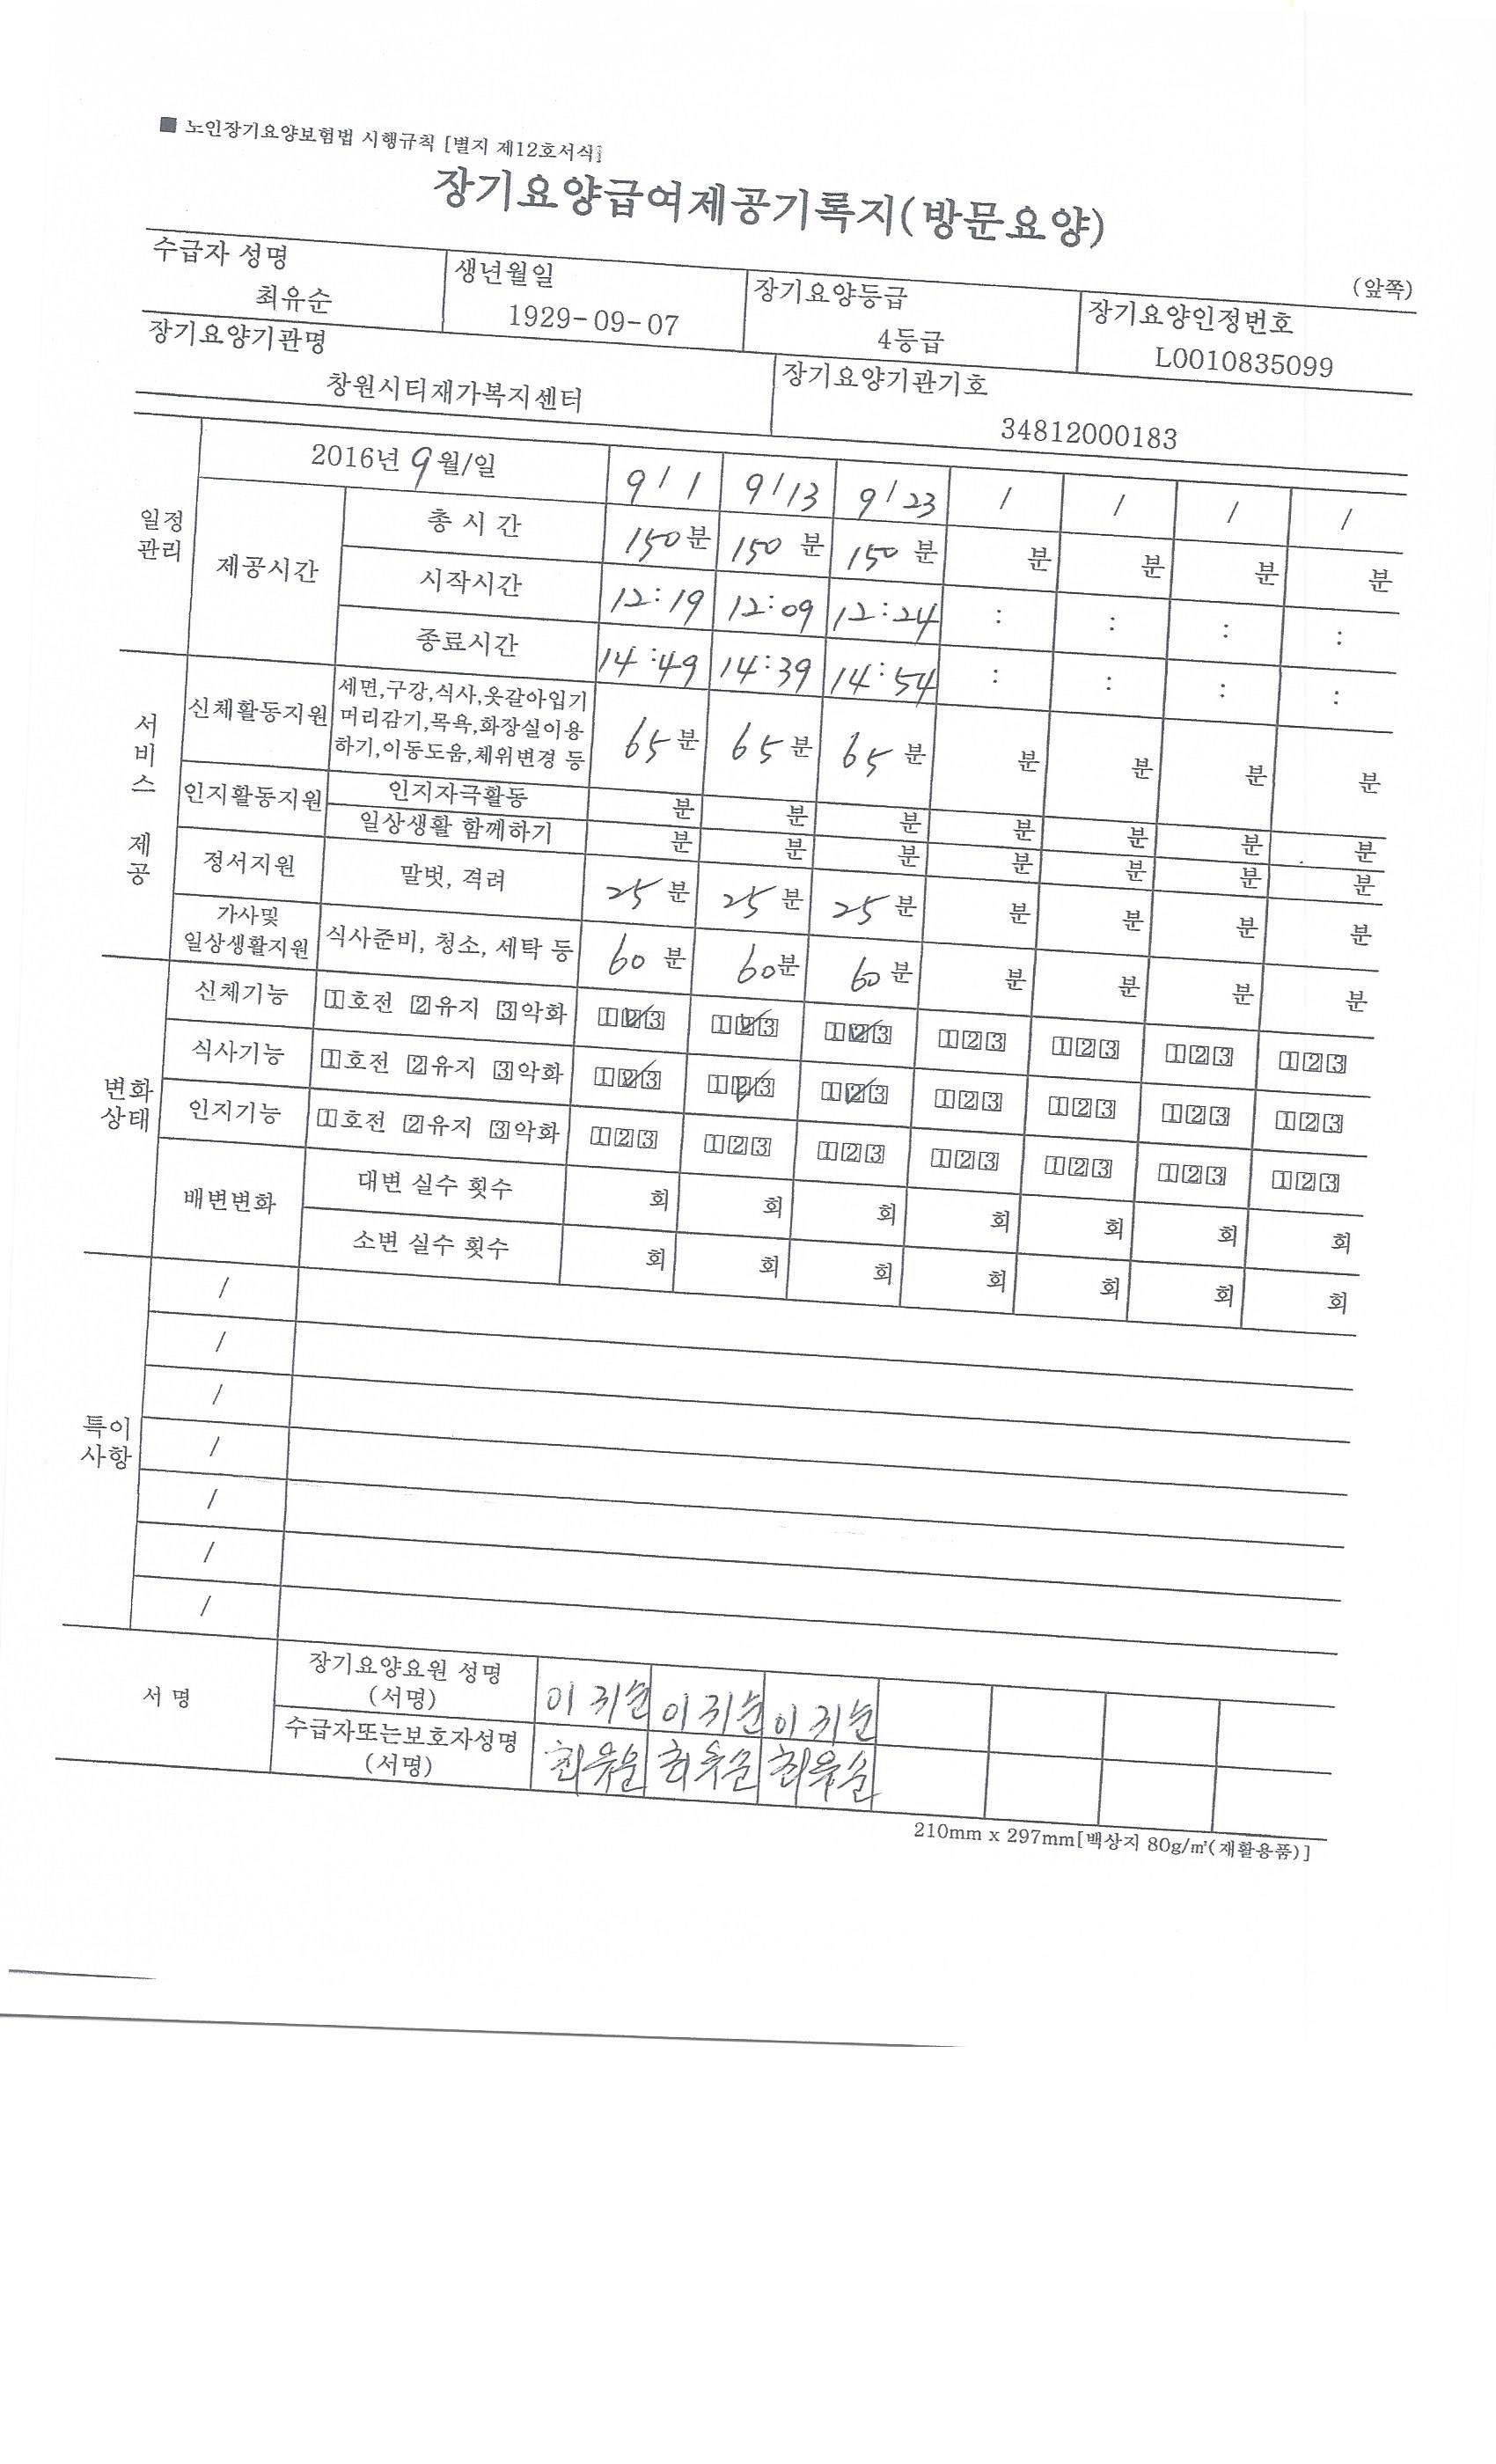 ■ 노인장기요양보험법 시행규칙 [별지 제12호서식]
장기요양급여제공기록지(방문요양)
(앞쪽)
수급자 성명 생년월일 장기요양등급 장기요양인정번호
최유순 1929-09-07 4등급 L0010835099
장기요양기관명 장기요양기관기호
창원시티재가복지센터 34812000183
일정관리
2016년 9월/일 9/1 9/13 9/23 / / / /
제공시간
총 시 간 150분 150분 150분 분 분 분 분
시작시간 12:19 12:09 12:24 : : : :
종료시간 14:49 14:39 14:54 : : : :
서비스 제공
신체활동지원
세면,구강,식사,옷갈아입기
머리감기,목욕,화장실이용
하기,이동도움,체위변경 등
65분 65분 65분 분 분 분 분
인지활동지원
인지자극활동 분 분 분 분 분 분 분
일상생활 함께하기 분 분 분 분 분 분 분
정서지원 말벗, 격려 25분 25분 25분 분 분 분 분
가사및
일상생활지원
식사준비, 청소, 세탁 등 60분 60분 60분 분 분 분 분
변화상태
신체기능 1호전 2유지 3악화 123 123 123 123 123 123 123
식사기능 1호전 2유지 3악화 123 123 123 123 123 123 123
인지기능 1호전 2유지 3악화 123 123 123 123 123 123 123
배변변화
대변 실수 횟수 회 회 회 회 회 회 회
소변 실수 횟수 회 회 회 회 회 회 회
특이사항
/
/
/
/
/
/
/
서 명
장기요양요원 성명
(서명)
이귀순 이귀순 이귀순
수급자또는보호자성명
(서명)
최유순 최유순 최유순
210mm x 297mm[백상지 80g/㎡(재활용품)]